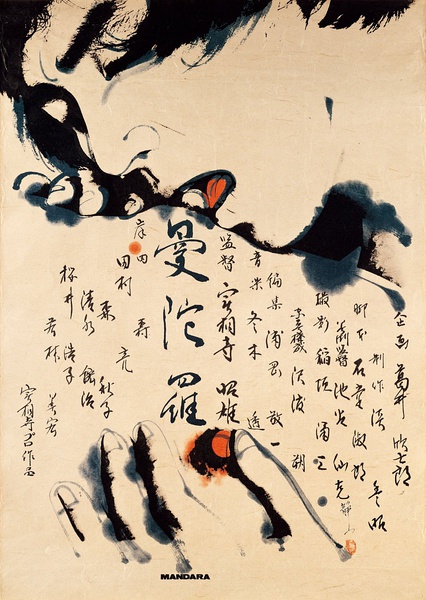 企画 葛井欣士郎
制作 淡豊昭
脚本 石堂淑朗
美術 池谷仙克
撮影 稲垣涌三
編集 浦岡敬一
音楽 冬木透
監督 実相寺昭雄
曼陀羅
岸田
田村 亮
森 秋子
清水紘治
桜井浩子
若林美宏
実相寺プロ作品
MANDARA